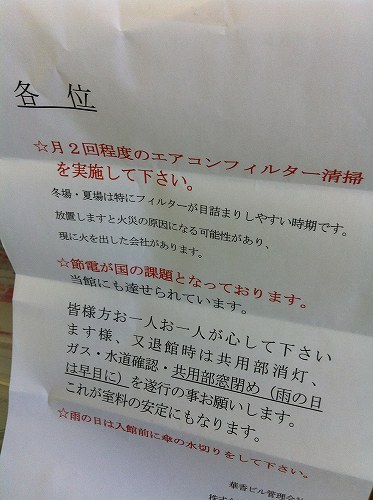 各　位
☆月２回程度のエアコンフィルター清掃
を実施して下さい。
冬場・夏場は特にフィルターが目詰まりしやすい時期です。
放置しますと火災の原因になる可能性があり、
現に火を出した会社があります。
☆節電が国の課題となっております。
当館にも達せられています。
皆様方お一人お一人が心して下さい
ます様、又退館時は共用部消灯、
ガス・水道確認・共用部窓閉め（雨の日
は早目に）を遂行の事お願いします。
これが室料の安定にもなります。
☆雨の日は入館前に傘の水切りをして下さい。
華香ビル管理会社
株式